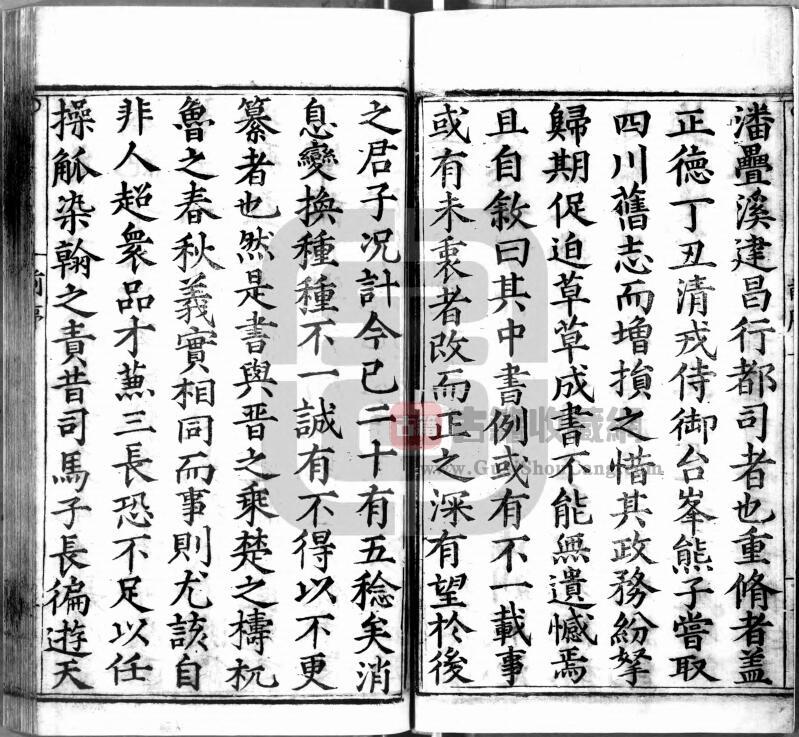 潘疊溪建昌行都司者也重脩者蓋
正德丁丑清戎侍御台峯熊子嘗取
四川舊志而增損之惜其政務紛拏
歸期促迫草草成書不能無遺憾焉
且自敘曰其中書例或有不一載事
或有未衷者改而正之深有望於後
之君子况計今已二十有五稔矣消
息變換種種不一誠有不得以不更
纂者也然是書與晋之乘楚之檮杌
魯之春秋義實相同而事則尤該自
非人超衆品才蒹三長恐不足以任
操觚染翰之責昔司馬子長徧遊天
古籍 古籍收藏網
www.GuJiShouCang.com